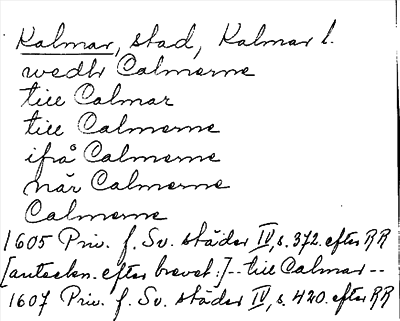 Kalmar, stad, Kalmar l.
wedh Calmerne
till Calmar
till Calmerne
ifrå Calmerne
när Calmerne
Calmerne
1605 Priv. f. Sv. städer IV, s. 372. efter RR
[anteckn. efter brevet:] -- till Calmar --
1607 Priv. f. Sv. städer IV, s. 420. efter RR